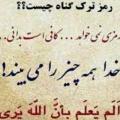 رمز ترک گناه چیست؟؟
رمزی نمی خواهد ... کافی است بدانی...
خدا همه چیز را می بیند!
أَلَمْ يَعْلَم بِأَنَّ اللَّهَ يَرَى